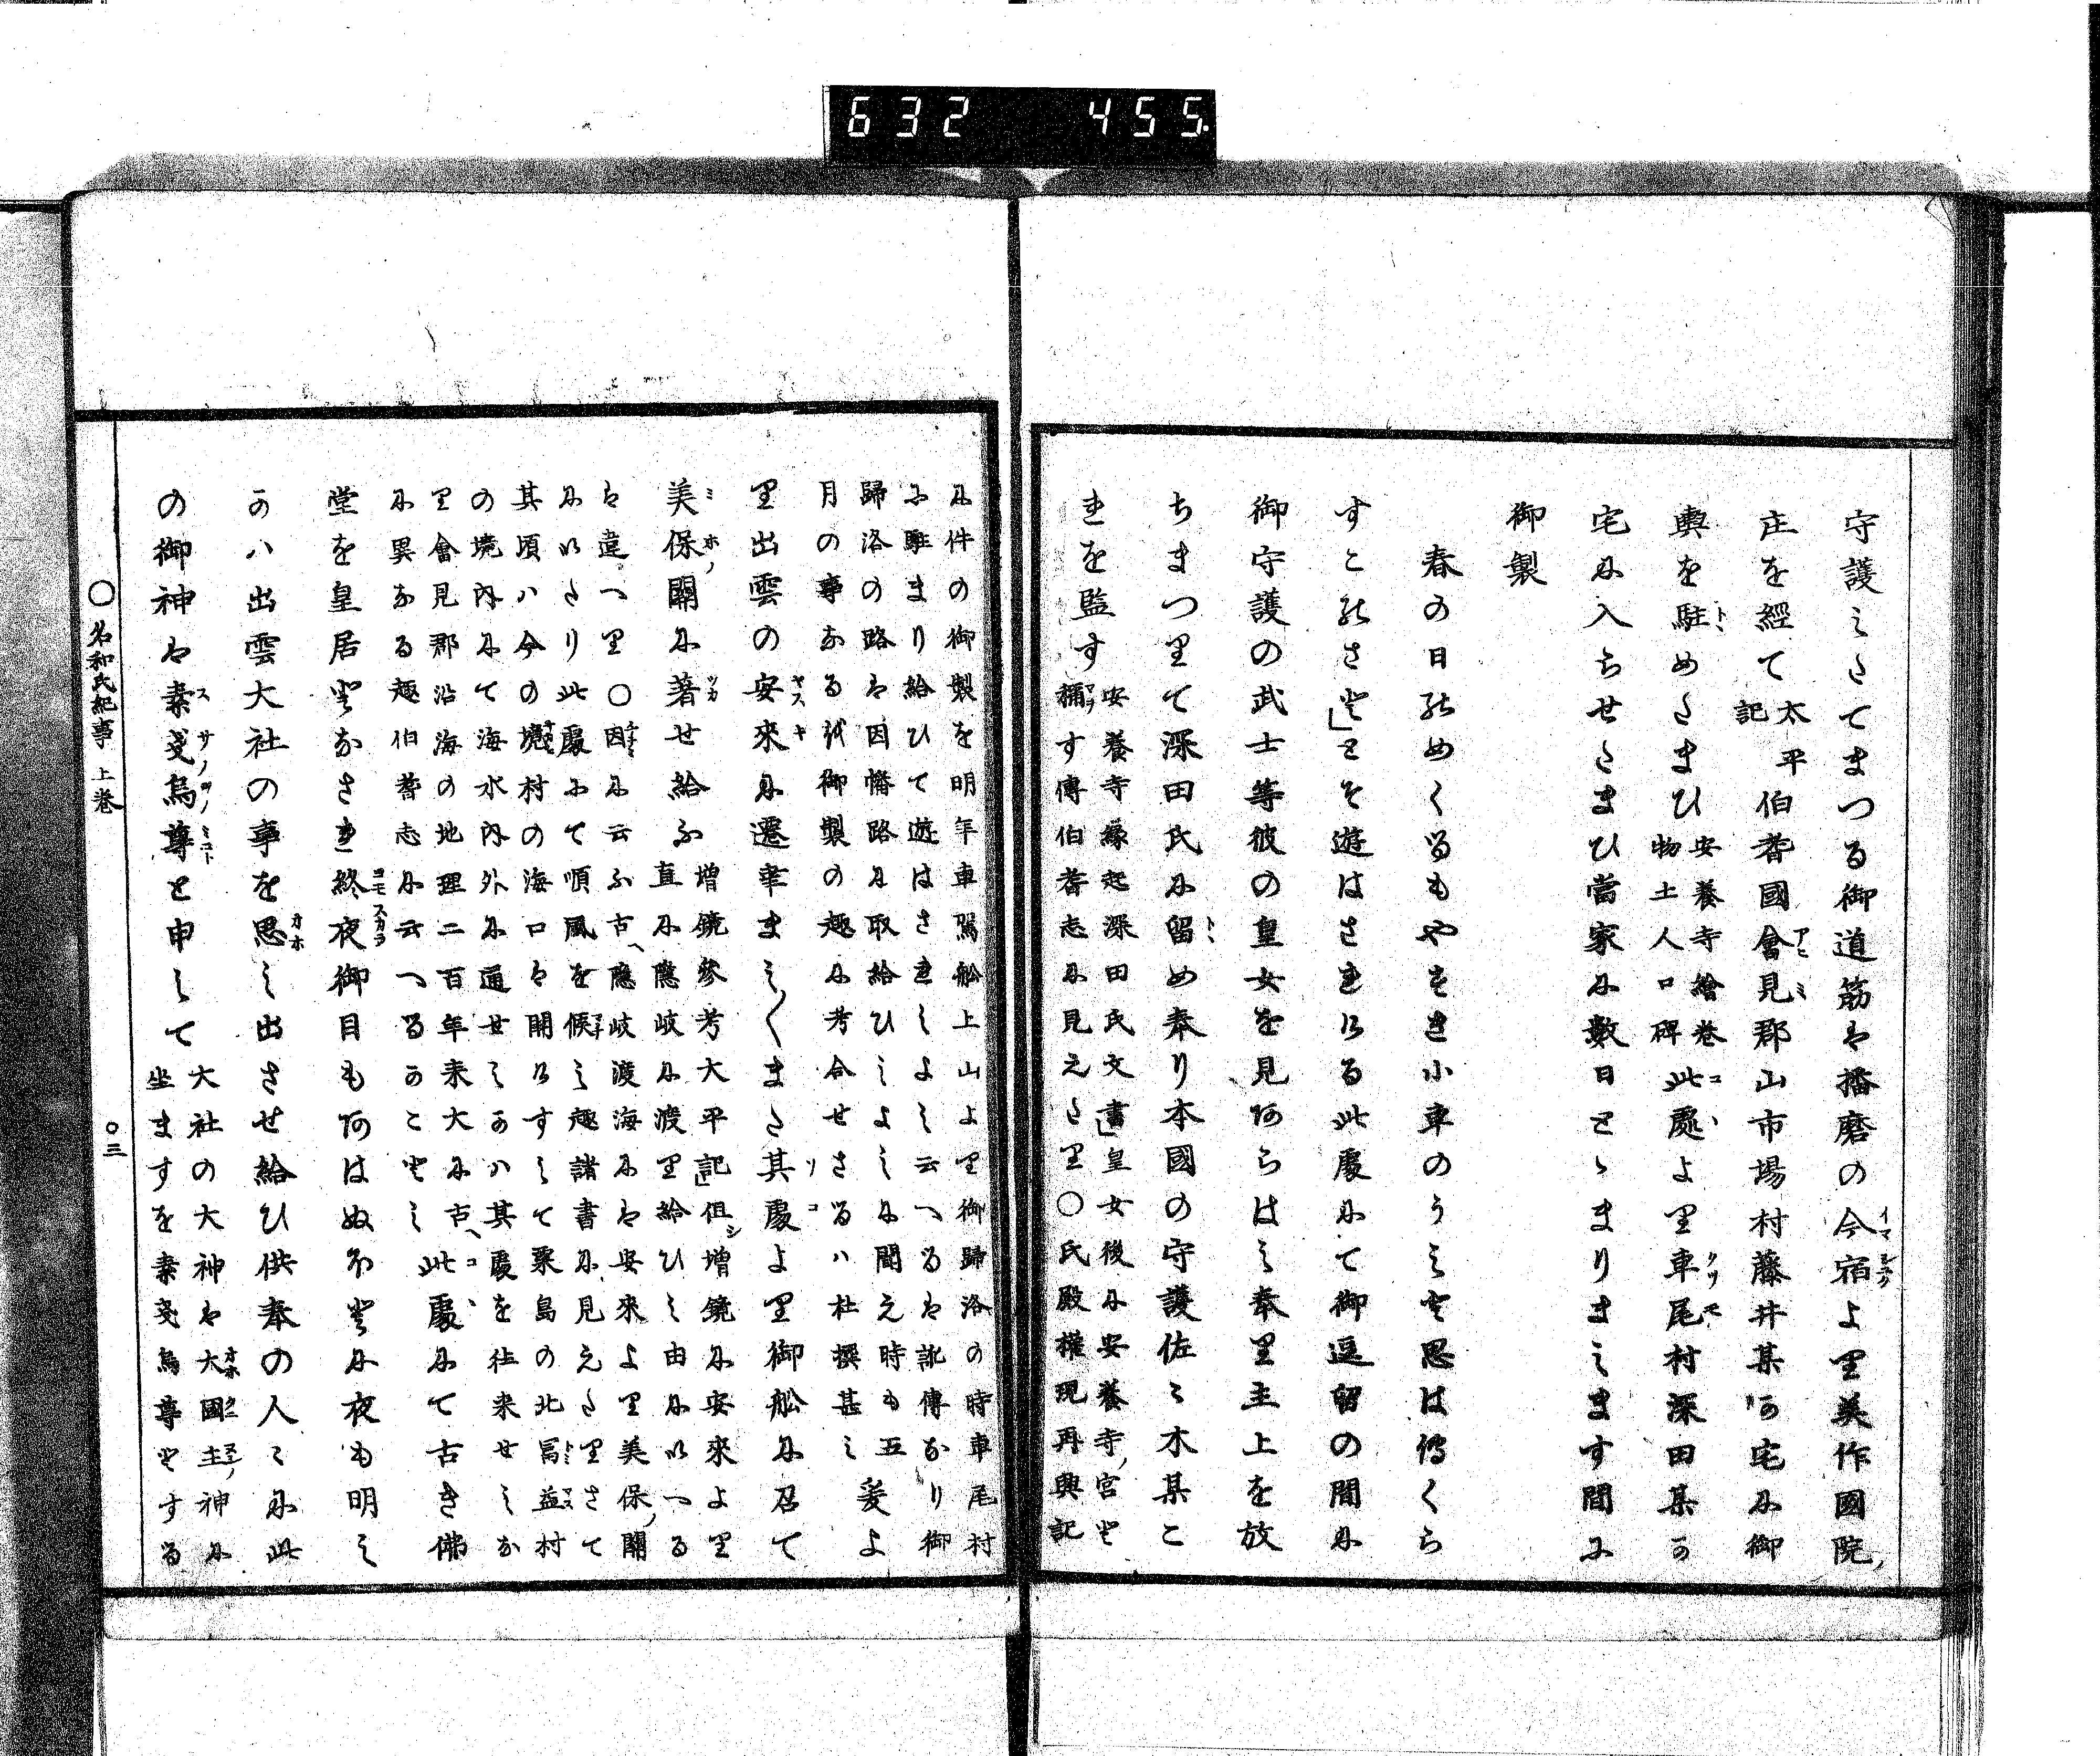 632 455.
守護したてまつる御道筋は播磨の今宿より美作國院ノ
庄を經て太平記伯耆國會見郡山市場村藤井某の宅に御
輿を駐めたまひ安養寺繪巻物土人口碑此處より車尾村深田某の
宅に入らせたまひ當家に數日とゝまりまします間に
御製
春の日のめくるもやすき小車のうしと思はてくら
すこのさと」とそ遊はされける此處にて御逗留の間に
御守護の武士等彼の皇女を見あらはし奉里主上を放
ちまつりて深田氏に留め奉り本國の守護佐々木某こ
れを監す安養寺縁起深田氏文書」皇女後に安養寺ノ宮と
稱す傳伯耆志に見えたり〇氏殿權現再興記
に件の御製を明年車駕舩上山より御歸洛の時車尾村
に駐まり給ひて遊はされしよし云へるは訛傳なり御
歸洛の路は因幡路に取給ひしよしに聞え時も五
月の事なる
御製の趣に考合せさるハ杜撰甚し爰よ
り出雲の安來に遷幸ましくまた其處より御舩に召て
美保ノ關に著せ給ふ増鏡參考大平記」但シ増鏡に安來より
直に隱岐に渡り給ひし由に以へる
は違へり〇因に云ふ古ヘ隱岐渡海には安來より美保ノ關
にいたり此處にて順風を候し趣諸書に見えたりさて
其頃ハ今の境村の海口は開けすして粟島の北冨益村
の境内にて海水内外に通せしかハ其處を往来せしな
り會見郡沿海の地理二百年来大に古ヘ
に異なる趣伯耆志に云へるかことし此處にて古き佛
堂を皇居となされ終夜御目もあはぬほとに夜も明し
かハ出雲大社の事を思し出させ給ひ供奉の人々に此
の御神は素戔烏尊と申して大社の大神は大國主ノ神に
坐ますを素戔烏尊とする
〇名和氏紀事 上巻 〇三